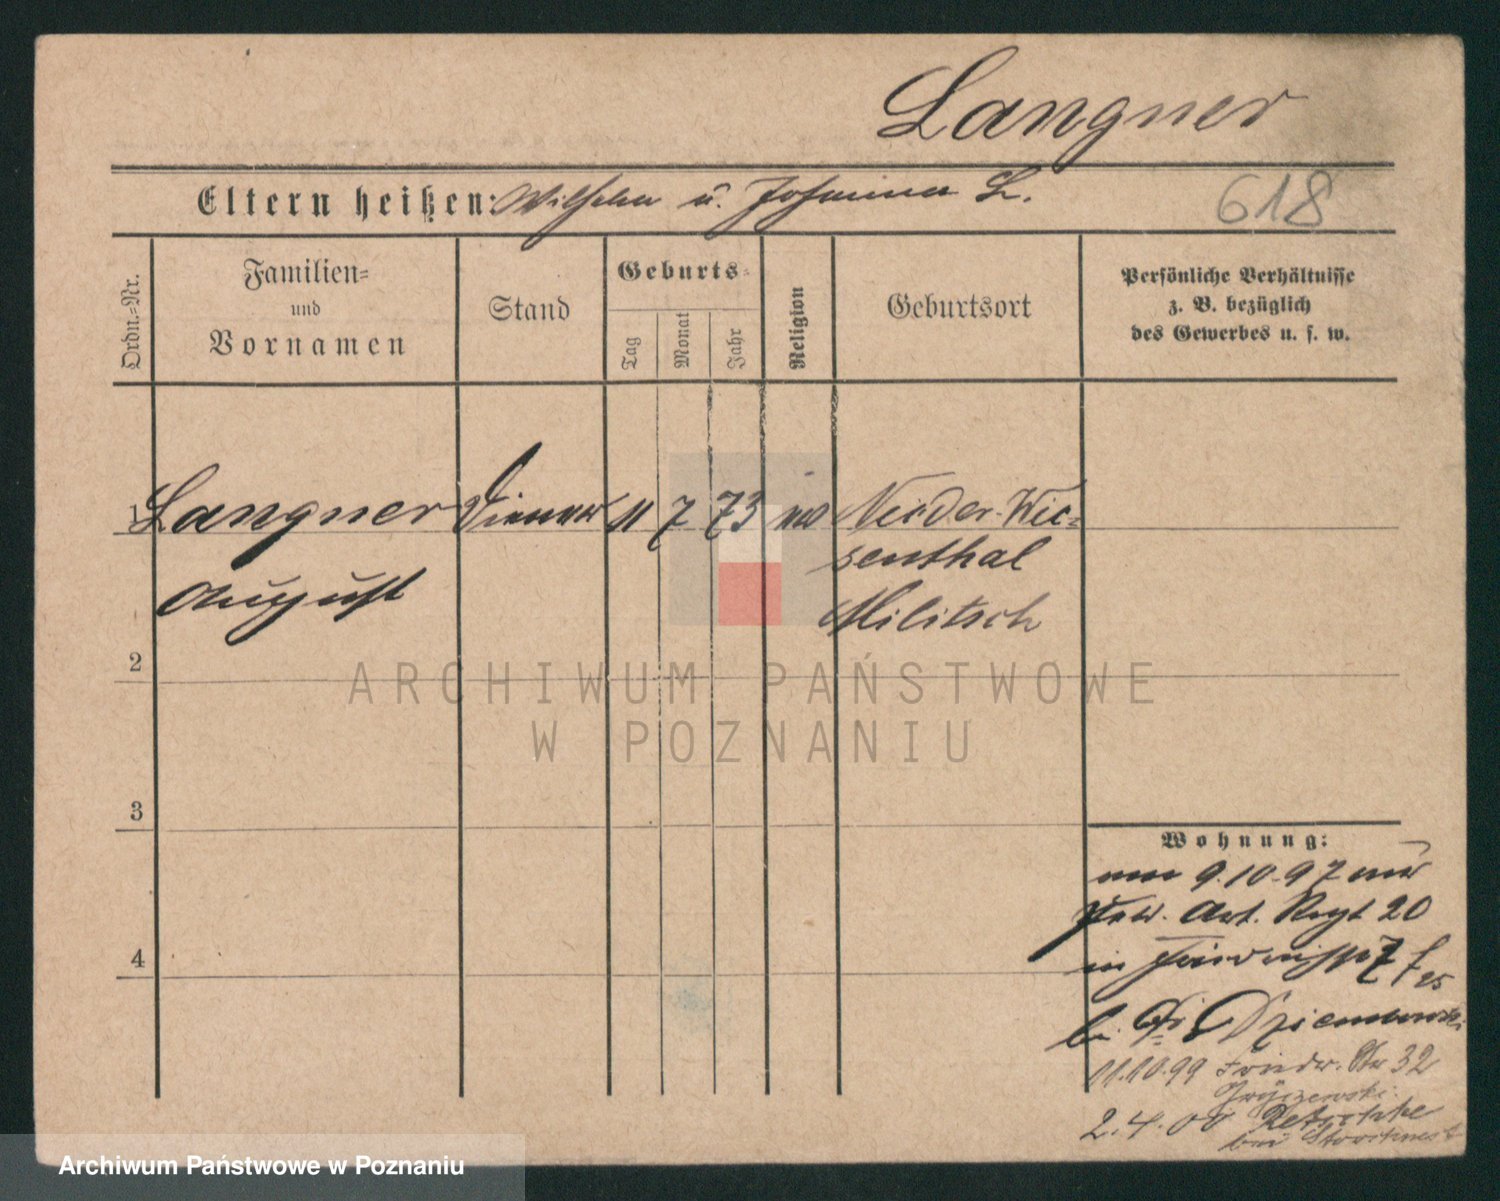 Langner
Eltern heißen: Wilhelm u. Johanna L.
618
Ordn.=Nr.
Familien=
und
Vornamen
Stand
Geburts=
Tag
Monat
Jahr
Religion
Geburtsort
Persönliche Verhältnisse
z. B. bezüglich
des Gewerbes u. s. w.
1 Langner Diener 11 7 73 Neider-Wie=
senthal
August Militsch
2
ARCHIWUM PAŃSTWOWE
W POZNANIU
3
Wohnung:
9.10.97
Art. Regt 20
in
4
b. Dziembowski
11.10.99 Friedr. Str 32
2.4.00
bei
Archiwum Państwowe w Poznaniu